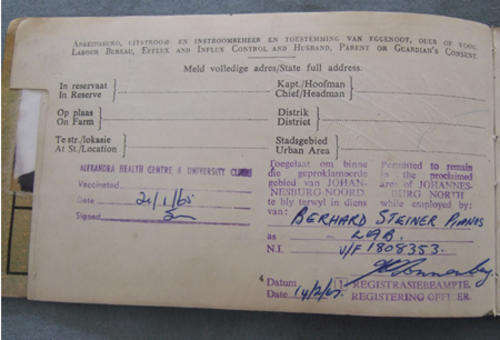 ARBEIDSBURO, UITSTROOM EN INSTROOMBEHEER EN TOESTEMMING VAN EGGENOOT, OUER OF VOOG.
LABOUR BUREAU, EFFLUX AND INFLUX CONTROL AND HUSBAND, PARENT OR GUARDIAN'S CONSENT.
Meld volledige adres/State full address.
In reservaat
In Reserve
Kapt./Hoofman
Chief/Headman
Op plaas
On Farm
Distrik
District
Te str./lokasie
At St./Location
Stadsgebied
Urban Area
ALEXANDRA HEALTH CENTRE & UNIVERSITY CLINIC
Vaccinated
Date 21/1/65
Signed
Toegelaat om binne
die geproklameerde
gebied van JOHAN-
NESBURG-NOORD.
te bly terwyl in diens
van:
Permitted to remain
in the proclaimed
area of JOHANNES-
BURG NORTH
while employed by:
BERHARD STEINER PIANOS
as LAB.
N.I. V/F 1808353.
4
Datum
Date 14/2/
REGISTRASIEBEAMPTE.
REGISTERING OFFICER.